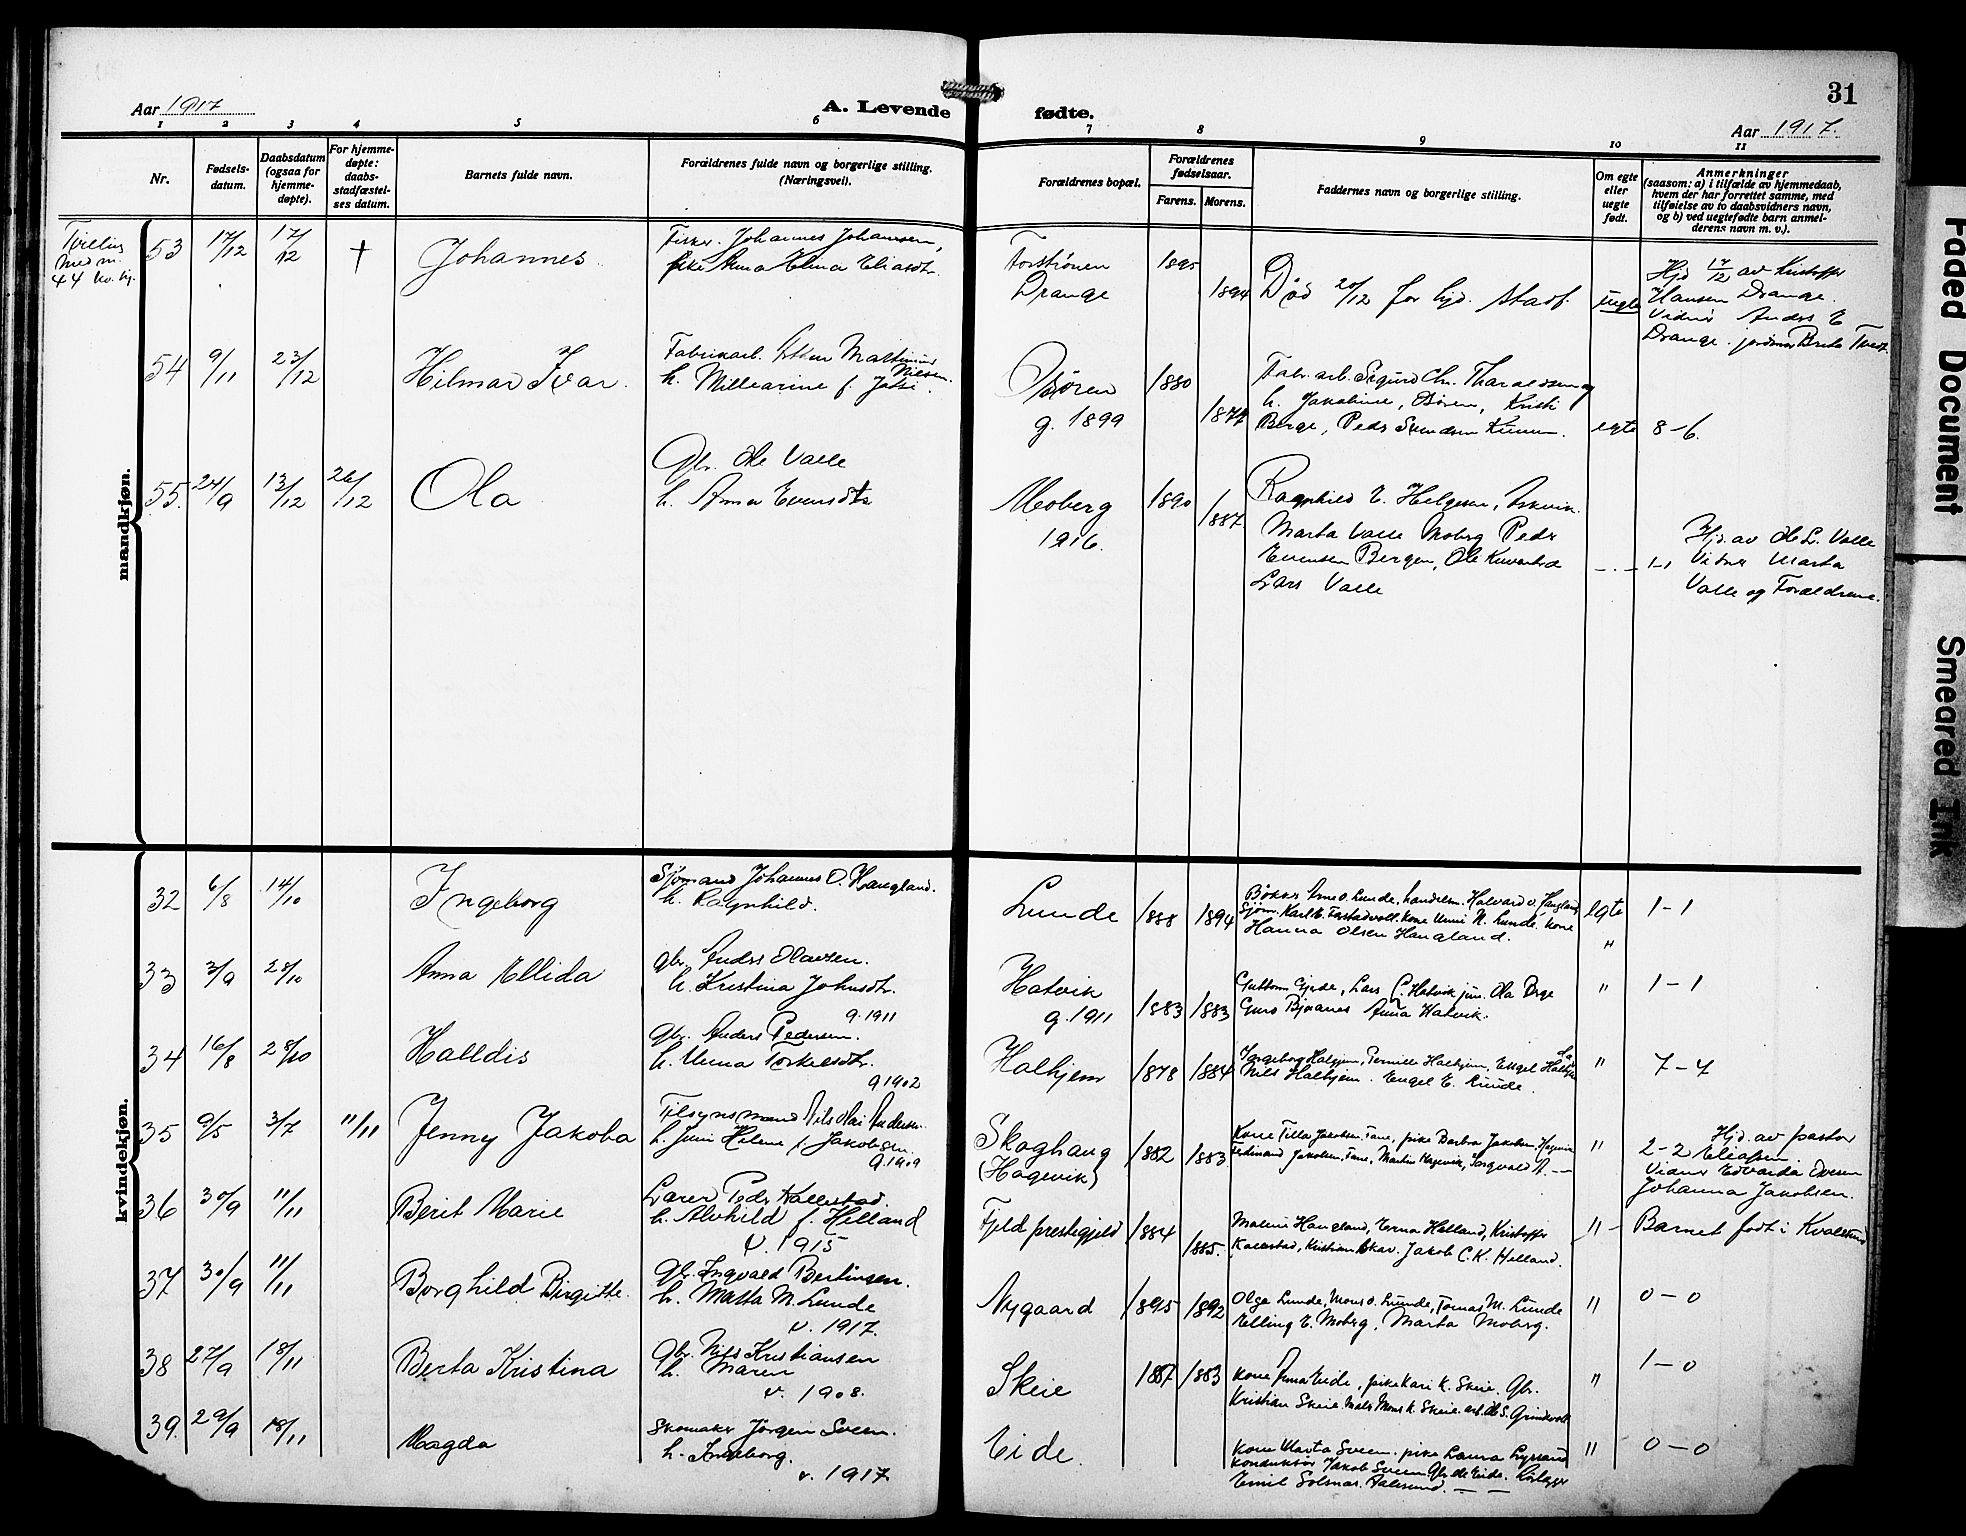 31
Aar 1917
A. Levende fødte.
Aar 1917.
1 2 3 4 5 6 7 8 9 10 11
Nr.
Fødsels-
datum.
Daabsdatum
(ogsaa for
hjemme-
døpte).
For hjemme-
døpte:
daabs-
stadfæstel-
ses datum.
Barnets fulde navn.
Forældrenes fulde navn og borgerlige stilling.
(Næringsvei).
Forældrenes bopæl.
Forældrenes
fødselsaar.
Farens. Morens.
Faddernes navn og borgerlige stilling.
Om egte
eller
uegte
født.
Anmerkninger
(saasom: a) i tilfælde av hjemmedaab,
hvem der har forrettet samme, med
tilføielse av to daabsvidners navn,
og b) ved uegtefødte barn anmel-
derens navn m. v.).
mandkjøn.
Tvilling
med nr.
44 kv. kj.
53 17/12 17/12 † Johannes
Fisker Johannes Johansen,
pike Anna Elina Eliasdtr.
Drange
1895 1894
Død 20/12 før hjd. stadf.
uegte
Hjd 17/12 av Kristoffer
Hansen Drange.
Vidner Anders E
Drange. jordmor Brita Tveit
54 9/11 23/12 Hilmar Ivar.
Fabrikarb. Martinius
Nilsen.
h. Millearine f.
Osøren
g. 1899
1880 1877
Fabr. arb. Sigurd Chr. Tharaldsen og
h. Jakobine, Osøren, Kristi
Berge, Peder
egte 8-6.
55. 24/9 13/12 26/12 Ola
Gbr. Ole Valle
h. Anna Evensdtr
Moberg
1916.
1890 1887
Ragnhild E. Helgesen, Askvik.
Marta Valle Moberg Peder
Evensen Bergen, Ole
Lars Valle
-.- 1-1
Hjd. av Ole L. Valle
Vidner Marta
Valle og Forældrene.
kvindekjøn.
32 6/8 14/10 Ingeborg
Sjømand Johannes O. Haugland.
h. Ragnhild.
Lunde 1888 1894
Bøkker Arne O. Lunde, handelsm. Halvard O. Haugland
Sjøm. Karl E. kone Unni N. Lunde, kone
Hanna Olsen Haugland.
egte 1-1
"
33 3/9 28/10 Anna Ellida
gbr. Anders Olavsen.
h. Kristina Johnsdtr.
g. 1911
Hatvik
g. 1911
1883 1883
Guttorm Gjerde, Lars C. Hatvik jun. Ola
Guro Bjørnes Anna Hatvik.
" 1-1
34 16/8 28/10 Halldis
gbr. Anders Pedersen.
h. Unna Torkelsdtr.
g 1902
Halhjem 1878 1884
Ingeborg Halhjem, Pernille Halhjem, Engel
Nils Halhjem. Engel E. Lunde.
" 7-4
35 9/5 3/7 11/11 Jenny Jakoba
Tilsynsmand Nils Andersen
h. Helene f. Jakobsen.
g. 1909
Skoghaug
(Hagevik)
1882 1883
Kone Tilla Jakobsen, Fane, pike Barbra Jakobsen, Hagevik
Ferdinand Jakobsen, Fane, Martin Hagevik, Ingvald A. --
" 2-2
Hjd. av pastor
Eliassen
Vidner Edvarda
Johanna Jakobsen.
36 30/9 11/11 Berit Marie
Lærer Peder Kallestad
h. Alvhild f. Helland
v. 1915
Fjeld prestegjeld 1884 1885.
Malene Haugland, Erna Helland, Kristoffer
Kallestad, Kristian Skar. Jakob C.K. Helland.
" - Barnet født i
37 30/9 11/11 Borghild Birgitte.
Gbr. Ingvald Bertinsen.
h. Marta M. Lunde
v. 1917.
Nygaard 1895 1892
Olga Lunde, Mons O. Lunde, Tomas M. Lunde
Elling E. Moberg, Marta Moberg.
" 0-0
38 27/9 18/11 Berta Kristina
Gbr. Nils Kristiansen
h. Maren
v. 1908.
Skeie 1887 1883
Kone Anna Eide, pike Kari K. Skeie. Gbr.
Kristian Skeie Mons K. Skeie. arb. Ole S. Grindevoll
" 1-0
39. 29/9 18/11 Magda
Skomaker Jørgen Sveen.
h. Ingeborg.
v. 1917
Eide.
Kone Marta Sveen. pike Laura
Konduktør Jakob Sveen Gbr. Ole Eide.
Emil Solsnes. Aalesund. — —
" 0-0
Faded Document
Smeared Ink